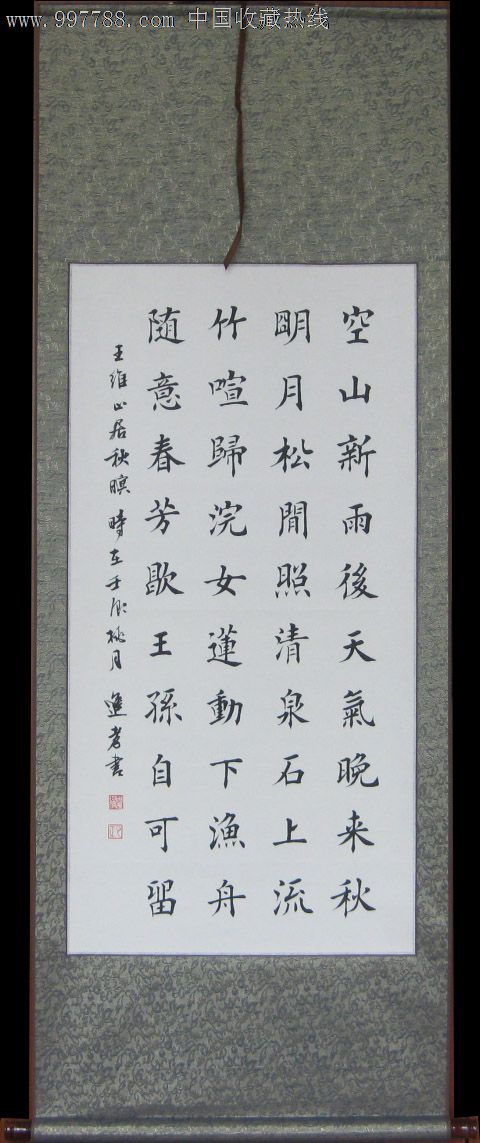 www.997788.com 中国收藏热线
空山新雨後天氣晚来秋
明月松間照清泉石上流
竹喧歸浣女蓮動下漁舟
随意春芳歇王孫自可留
王維山居秋暝時在壬辰桃月進孝書